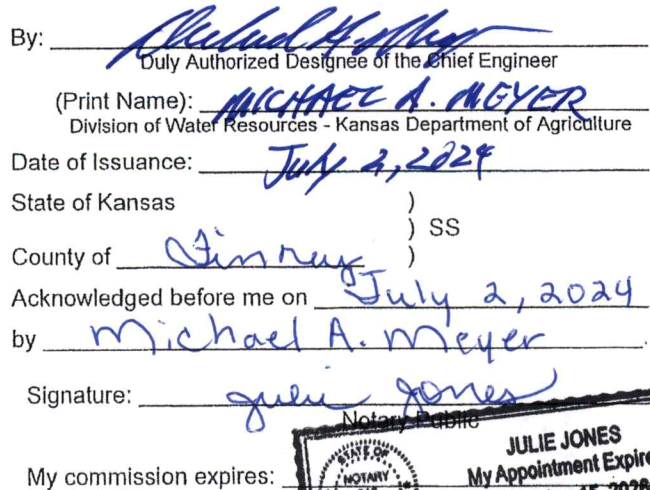 By: Michael A. Meyer
Duly Authorized Designee of the Chief Engineer
(Print Name): MICHAEL A. MEYER
Division of Water Resources - Kansas Department of Agriculture
Date of Issuance: July 2, 2024
State of Kansas )
) SS
County of Finney )
Acknowledged before me on July 2, 2024
by Michael A. Meyer.
Signature: Julie Jones
Notary Public
STATE OF
NOTARY
JULIE JONES
My Appointment Expire
My commission expires:
15, 2026